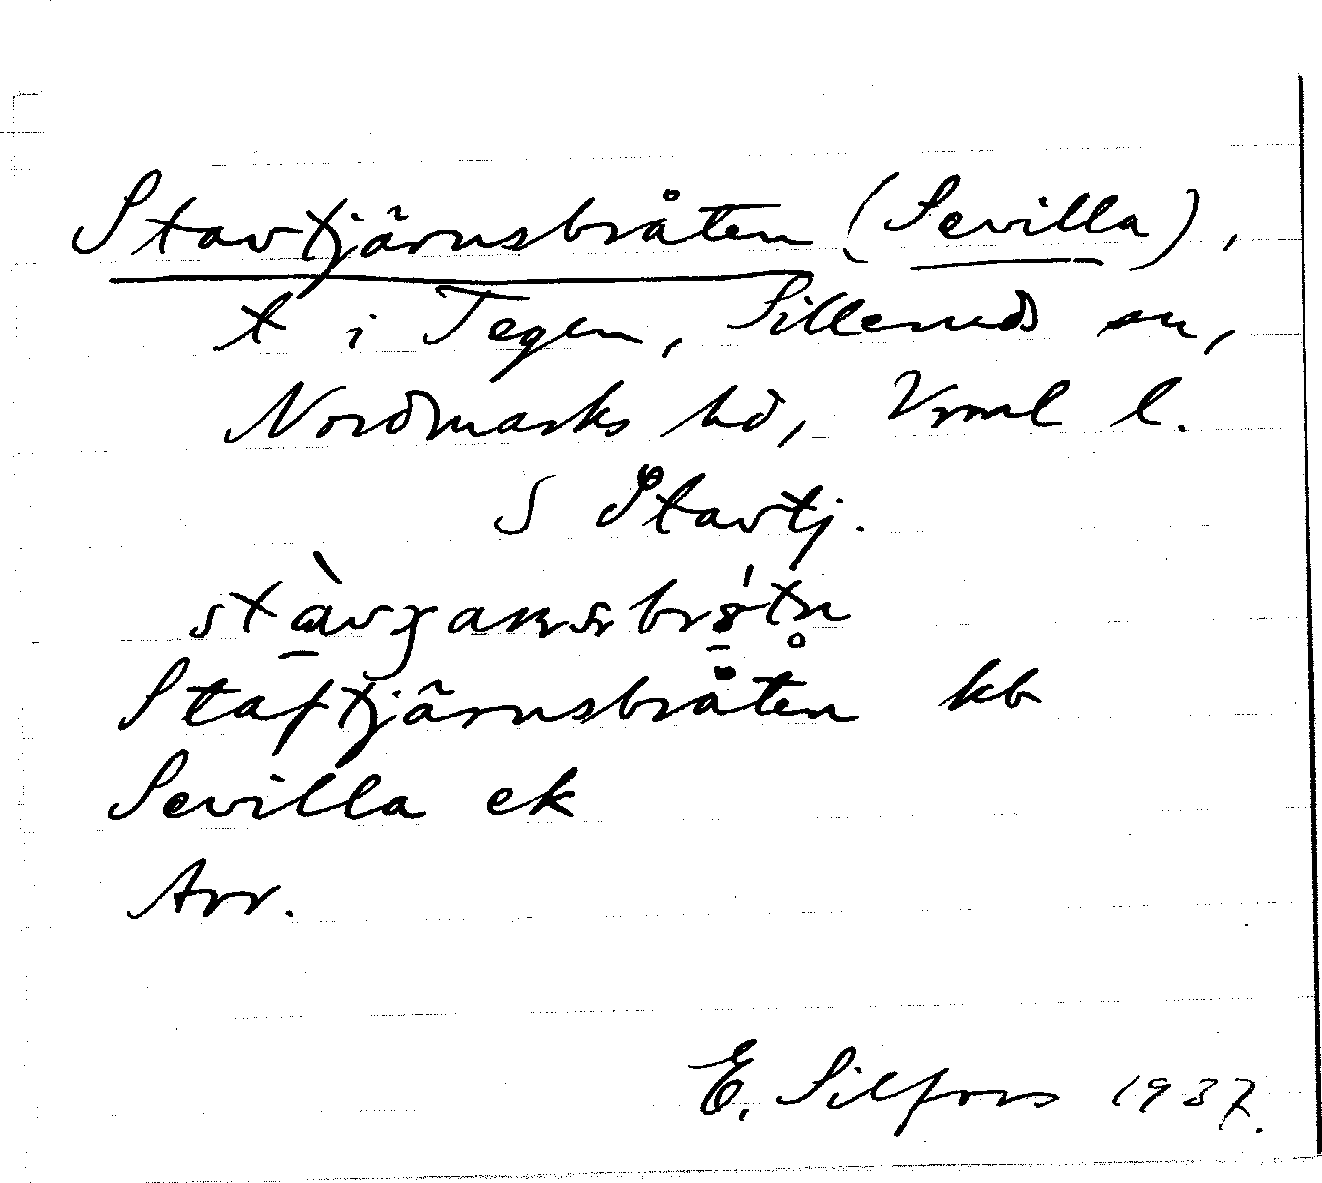 Stavtjärnsbråten (Sevilla),
t i Tegen, Silleruds sn,
Nordmarks hd, Vrml l.
S Stavtj.
Staftjärnsbråten kb
Sevilla ek
Arr.
E. Silfors 1937.